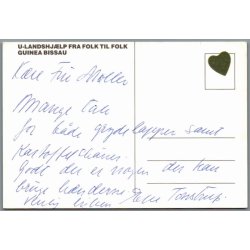 U-LANDSHJÆLP FRA FOLK TIL FOLK
GUINEA BISSAU
Kære Fru Møller
Mange Tak
for både grydelapper samt
Kartoffelskåner.
Godt der er nogen der kan
bruge hænderne.
Venlig hilsen